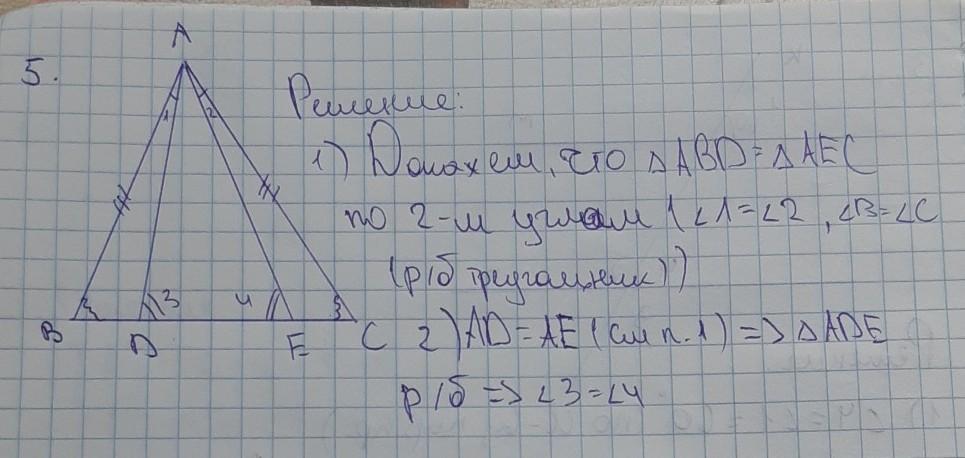 5.
A
1 2
3 4
B D E C
Решение:
1) Докажем, что △ABD = △AEC
по 2-м углам (∠1=∠2, ∠B=∠C
(р/б треугольник))
2) AD = AE (см п. 1) => △ADE
р/б => ∠3=∠4